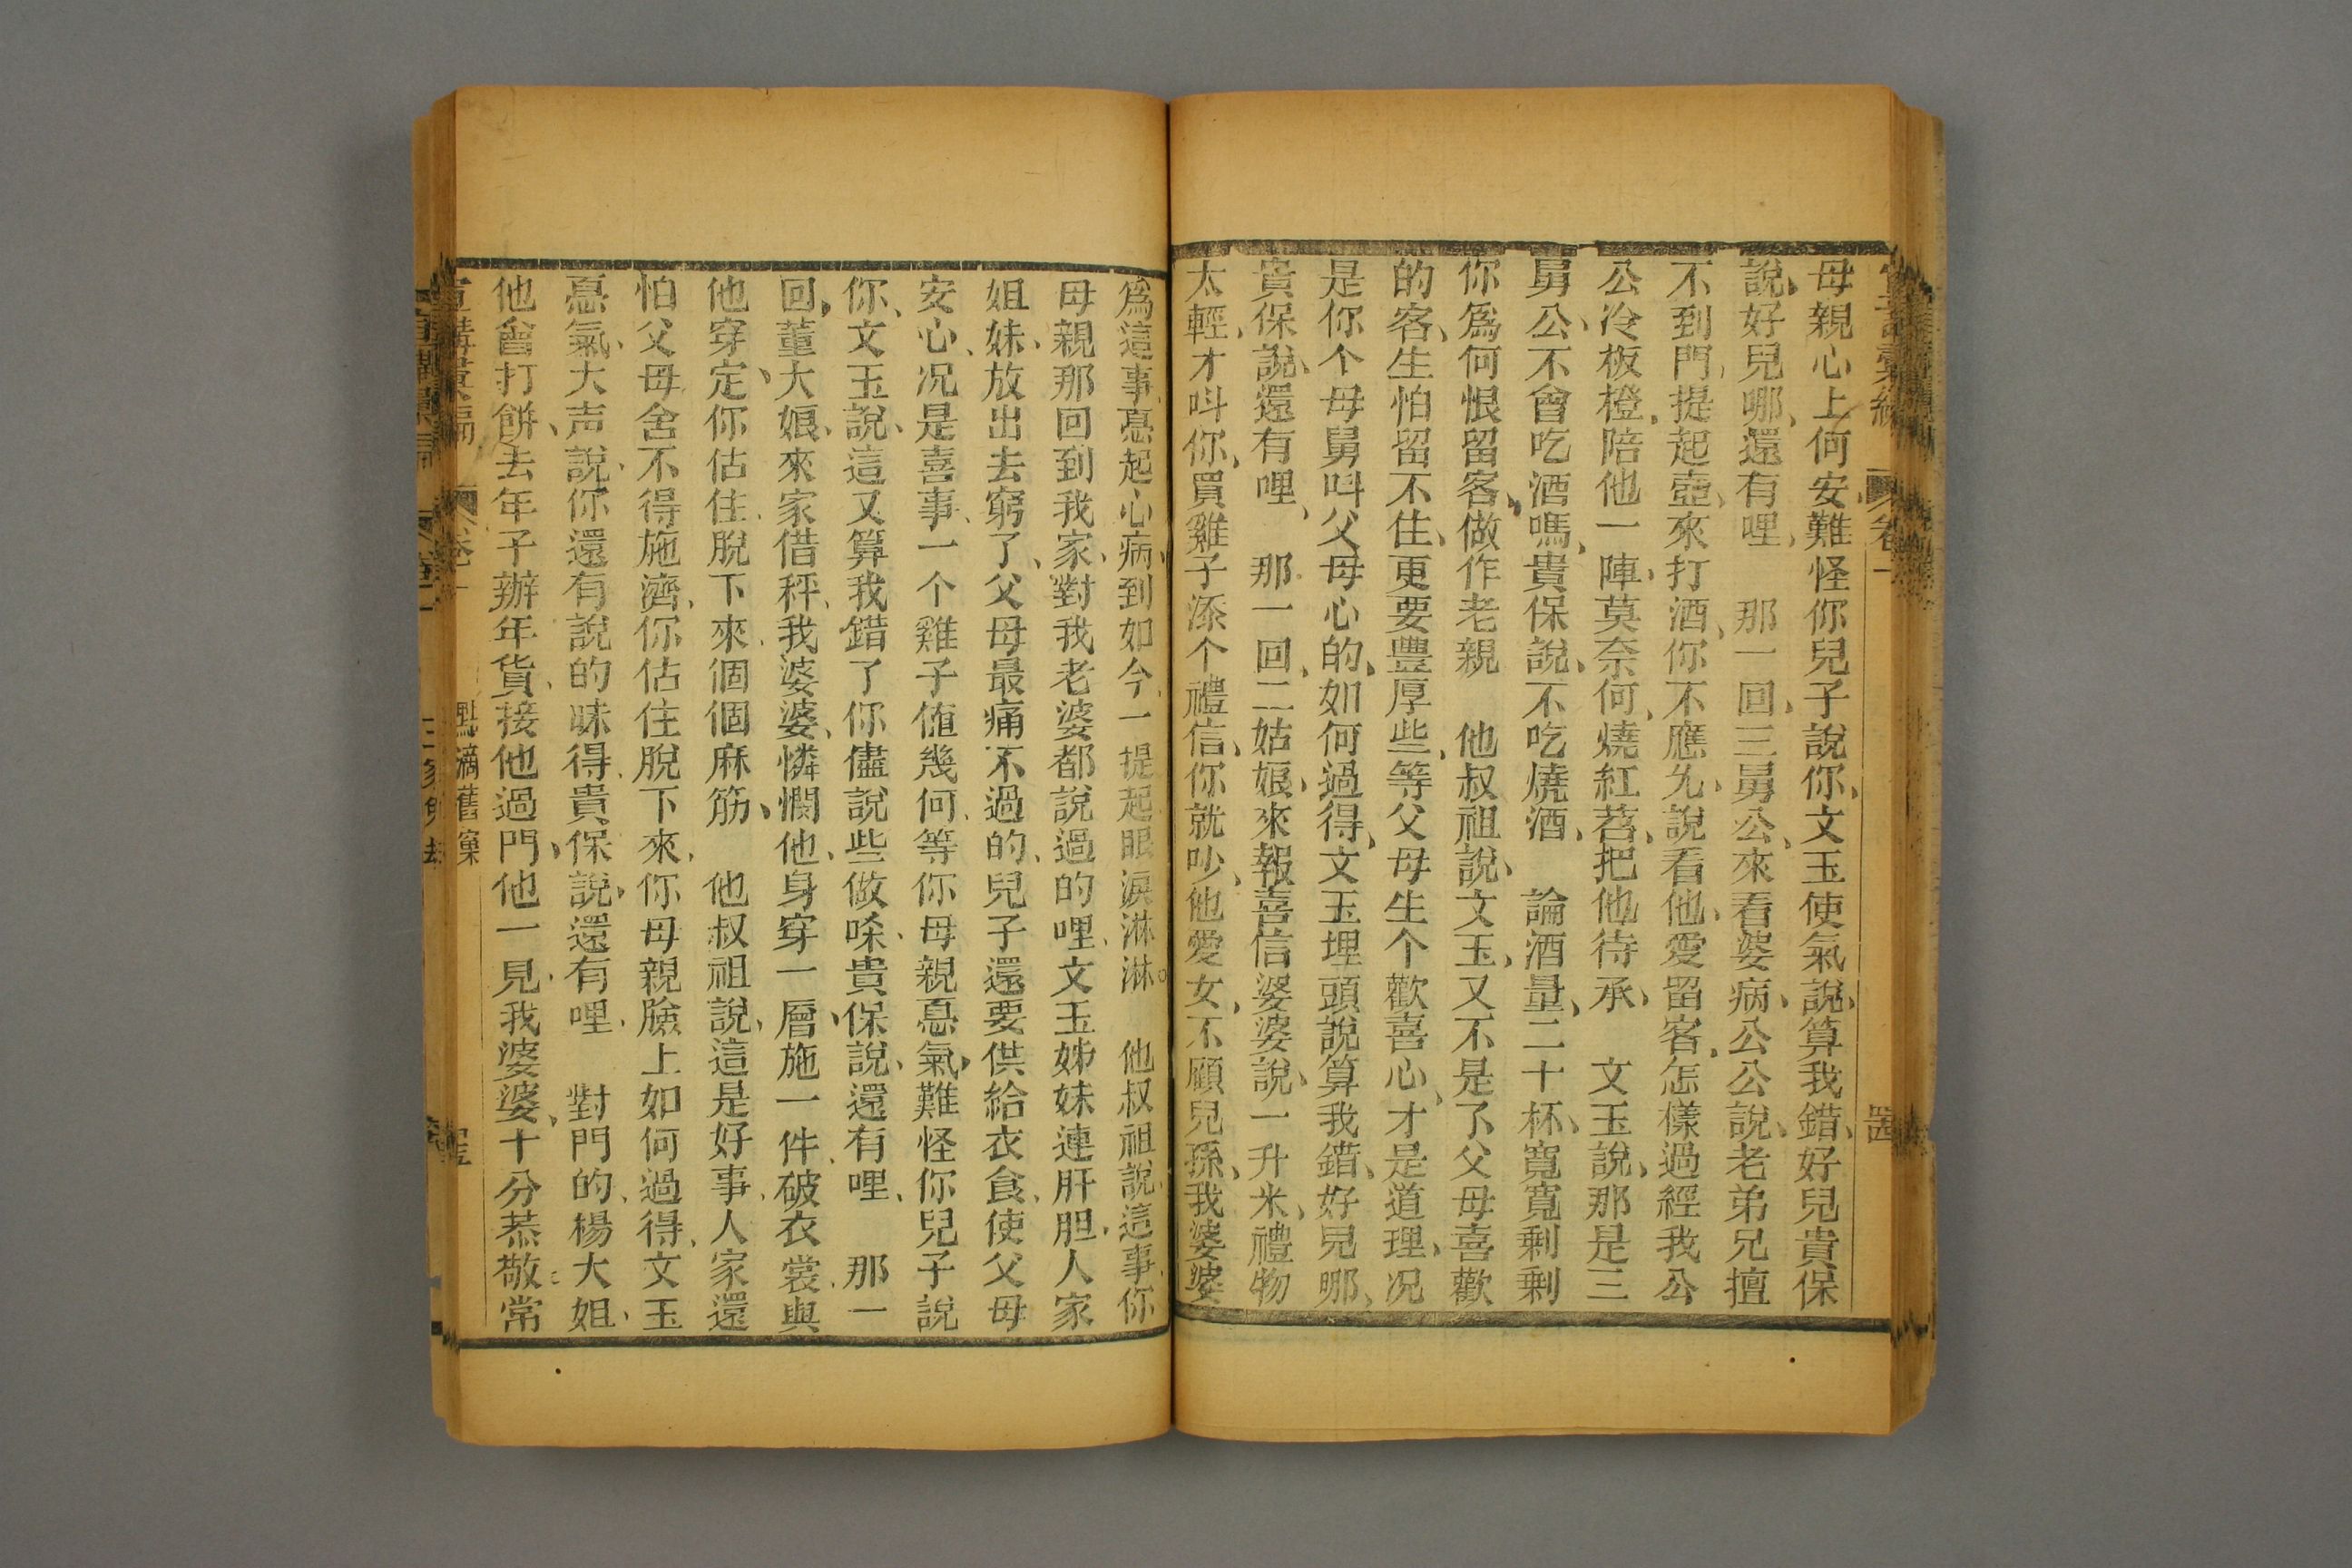 母親心上何安、難怪你兒子說你、文玉使氣說、算我錯、好兒貴保
說、好兒哪、還有哩、那一回、三舅公、來看婆病、公公說、老弟兄擅
不到門、提起壺、來打酒、你不應允、說看他、愛留客、怎樣過經我公
公冷板橙、陪他一陣、莫奈何、燒紅苕、把他待承、文玉說、那是三
舅公、不會吃酒嗎、貴保說、不吃燒酒、論酒量、二十杯、寬寬剩剩
你爲何恨留客、做作老親 他叔祖說、文玉、又不是了、父母喜歡
的客、生怕留不住、更要豐厚些、等父母生个歡喜心、才是道理、况
是你个母舅呌父母心的、如何過得、文玉埋頭說算我錯、好兒哪、
貴保說、還有哩、那一回、二姑娘、來報喜信婆婆說、一升米、禮物
太輕、才呌你、買雞子添个禮信、你就吵、他愛女、不顧兒孫、我婆婆
爲這事、慪起心病、到如今、一提起眼淚淋淋。他叔祖說、這事、你
母親那回到我家、對我老婆都說過的哩、文玉姊妹連肝胆、人家
姐妹、放出去窮了、父母最痛不過的、兒子還要供給衣食、使父母
安心、况是喜事、一个雞子値幾何、等你母親慪氣、難怪你兒子說
你、文玉說、這又算我錯了你儘說些做啋、貴保說、還有哩、那一
回、董大娘、來家借秤、我婆婆、憐憫他、身穿一層、施一件、破衣裳、與
他穿定、你估住、脫下來、個個麻筋、他叔祖說、這是好事、人家還
怕父母舍不得施濟、你估住脫下來、你母親臉上如何過得、文玉
慪氣、大声說、你還有說的味得、貴保說、還有哩、對門的、楊大姐、
他會打餅、去年子辦年貨、接他過門、他一見、我婆婆、十分恭敬、常
卷一